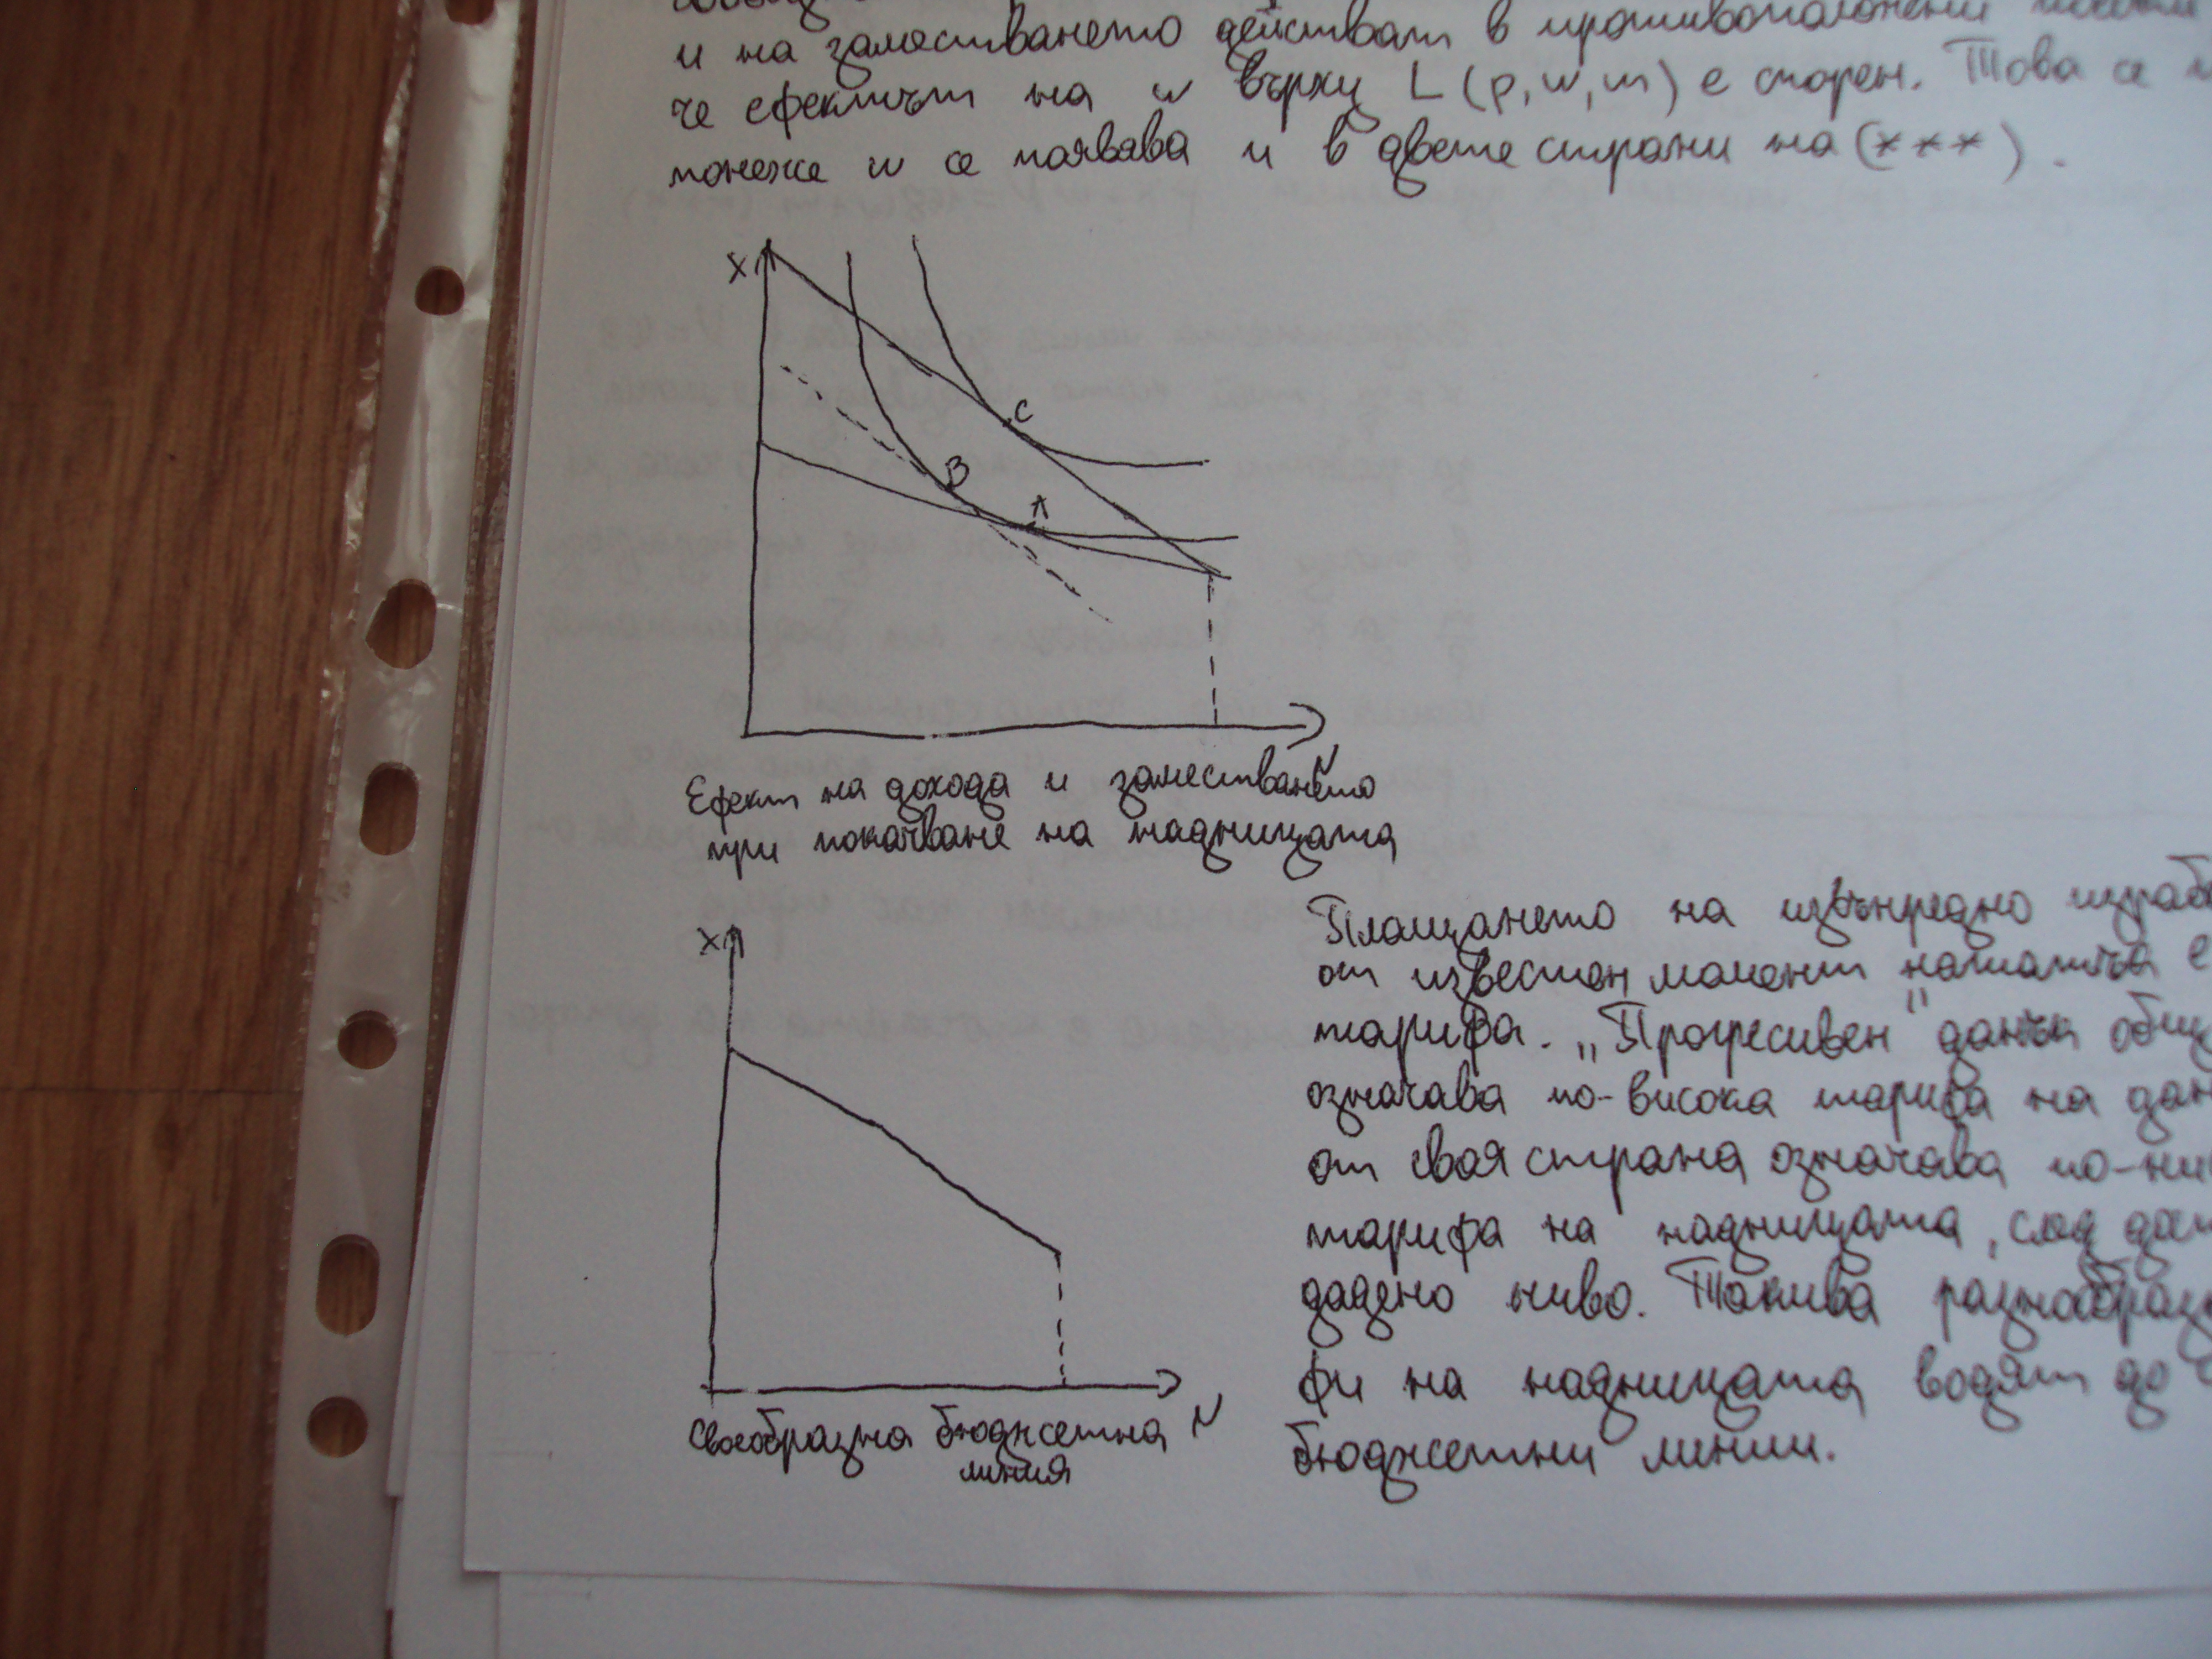 и на заместването действат в противоположни
че ефектът на w върху L (p, w, m) е спорен. Това се
понеже w се появява и в двете страни на (***).
X
C
B
A
N
Ефект на дохода и заместването
при покачване на надницата
Плащането на извънредно
от известен момент нататък е
X
тарифа. „Прогресивен" данък
означава по-висока тарифа на
от своя страна означава
тарифа на надницата, след
дадено ниво. Такива
фи на надницата водят до
N
Своеобразна бюджетна
линия
бюджетни линии.